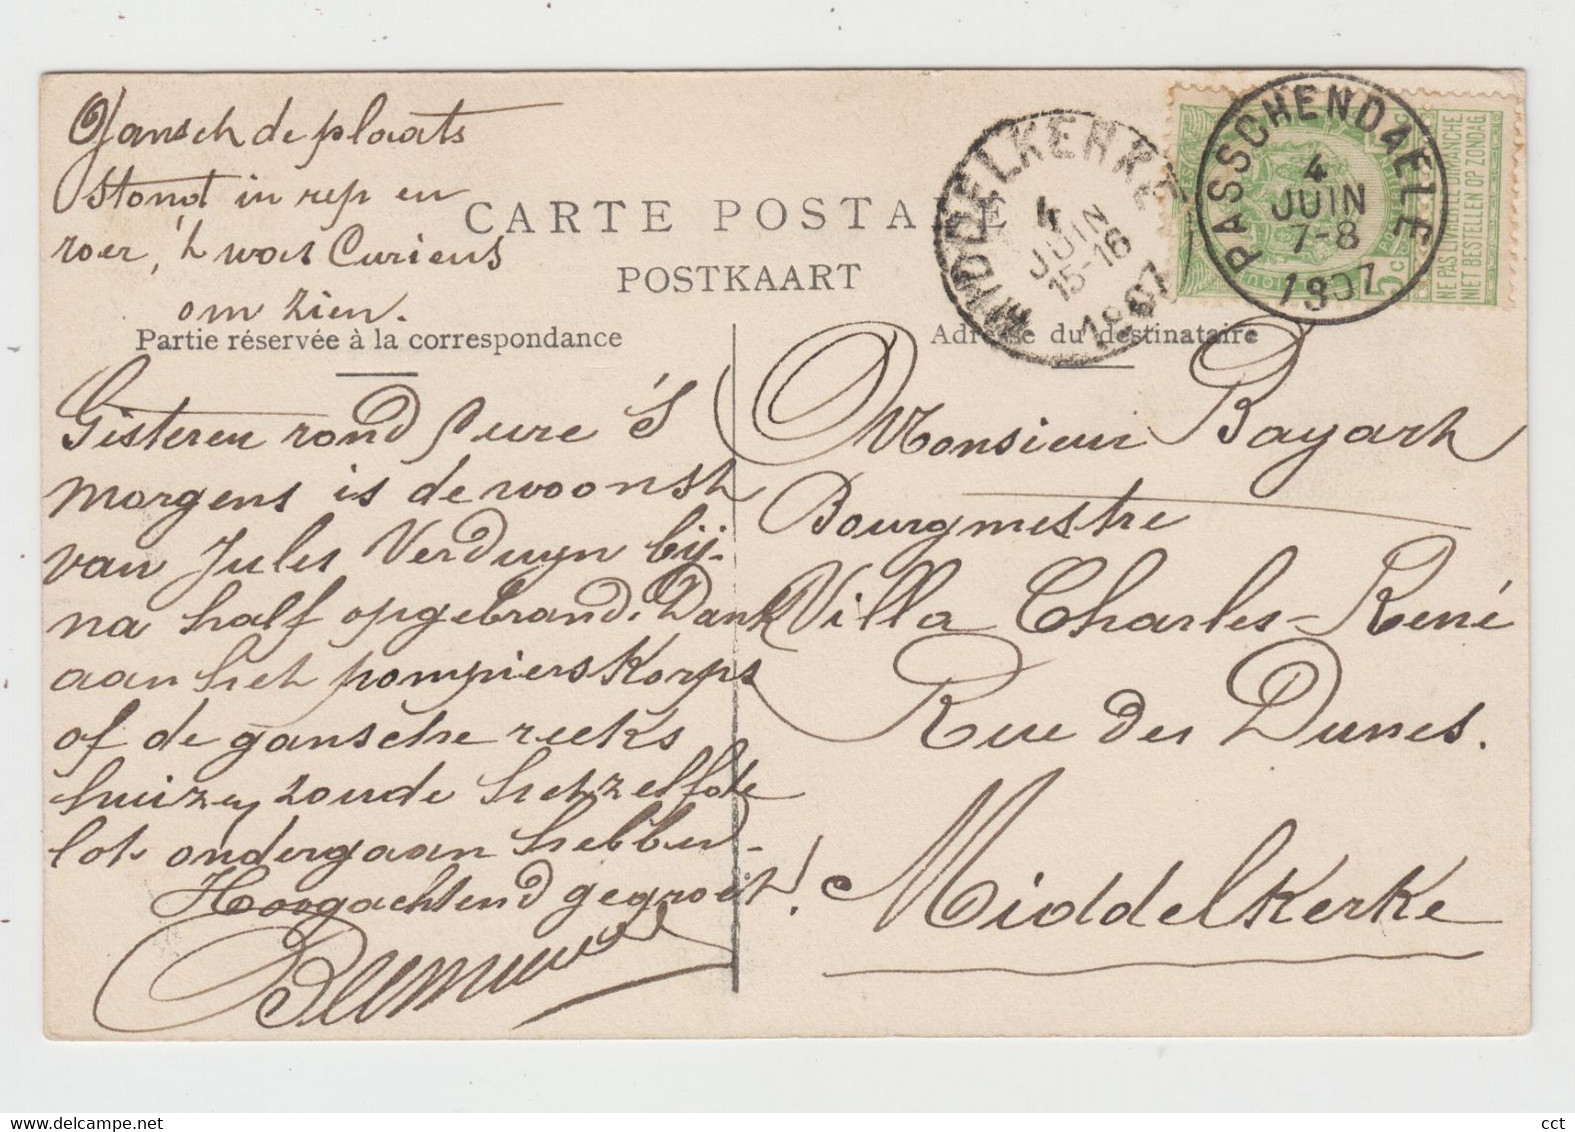 Gansch de plaats
stond in rep en
roer, 't was Curieus
om zien.
CARTE POSTALE
POSTKAART
Partie réservée à la correspondance
Adresse du destinataire
MIDDELKERKE
4
JUIN
15-16
1907
PASSCHENDAELE
4
JUIN
7-8
1907
5c
NE PAS LIVRER LE DIMANCHE
NIET BESTELLEN OP ZONDAG
Gisteren rond 1 ure 's
morgens is de woonst
van Jules Verduyn bij-
na half opgebrand. Dank
aan het pompierskorps
of de gansche reeks
huizen zoude hetzelfde
lot ondergaan hebben.
Hoogachtend gegroet!
Monsieur Bayart
Bourgmestre
Villa Charles-René
Rue des Dunes.
Middelkerke
cct